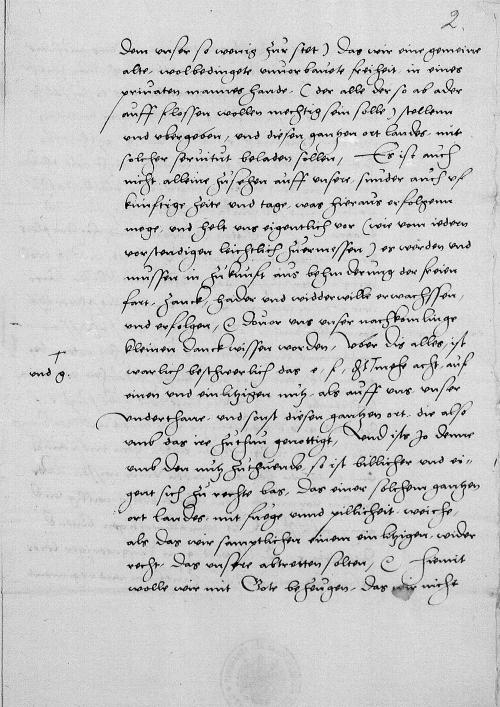 2.
dem vnser so wenig zur stet) das wir eine gemeine
alte wolbedingete vnuorbauete freiheit in eines
priuaten mannes hande (der alle der so ab ader
auff flossen wollen mechtig sein solle) stellenn
vnd vbergeben, vnd diesen gantzen ort landes mit
solcher seruitut beladen sollen, Es ist auch
nicht alleine zusehen auff vnsere, sunder auch vf
kunftige zeite vnd tage, was hieraus erfolgenn
moge, vnd helt vns eigentlich vor (wie vom iedem
vorstendigen leichtlich zuermessen) es werden vnd
mussen in zukunft aus behinderung der freien
fart, zanck, hader vnd widderwille erwachssen,
vnd erfolgen, dauor vns vnser nachkomlinge
kleinen danck wissen worden, vber dis alles, ist
warlich beschwerlich das e. f. acht, auf
vnd g.
einen vnd einlitzigen nutz, als auff vns, vnser
vnderthane, vnd sunst diesen gantzen ort, die also
vmb das ire genottigt, Vnd ists Jo denne
vmb den nutz zuthuende, so ist billicher vnd ei-
gent sich zu rechte bas, das einer solchem gantzen
ort landes mit fuege vnnd pillicheit weiche,
als das wir samptlichen einem einlitzigen, wider
recht, das vnsere abtretten solten, Hiemit
wolle wir mit Gote bezeugen, das wir nicht